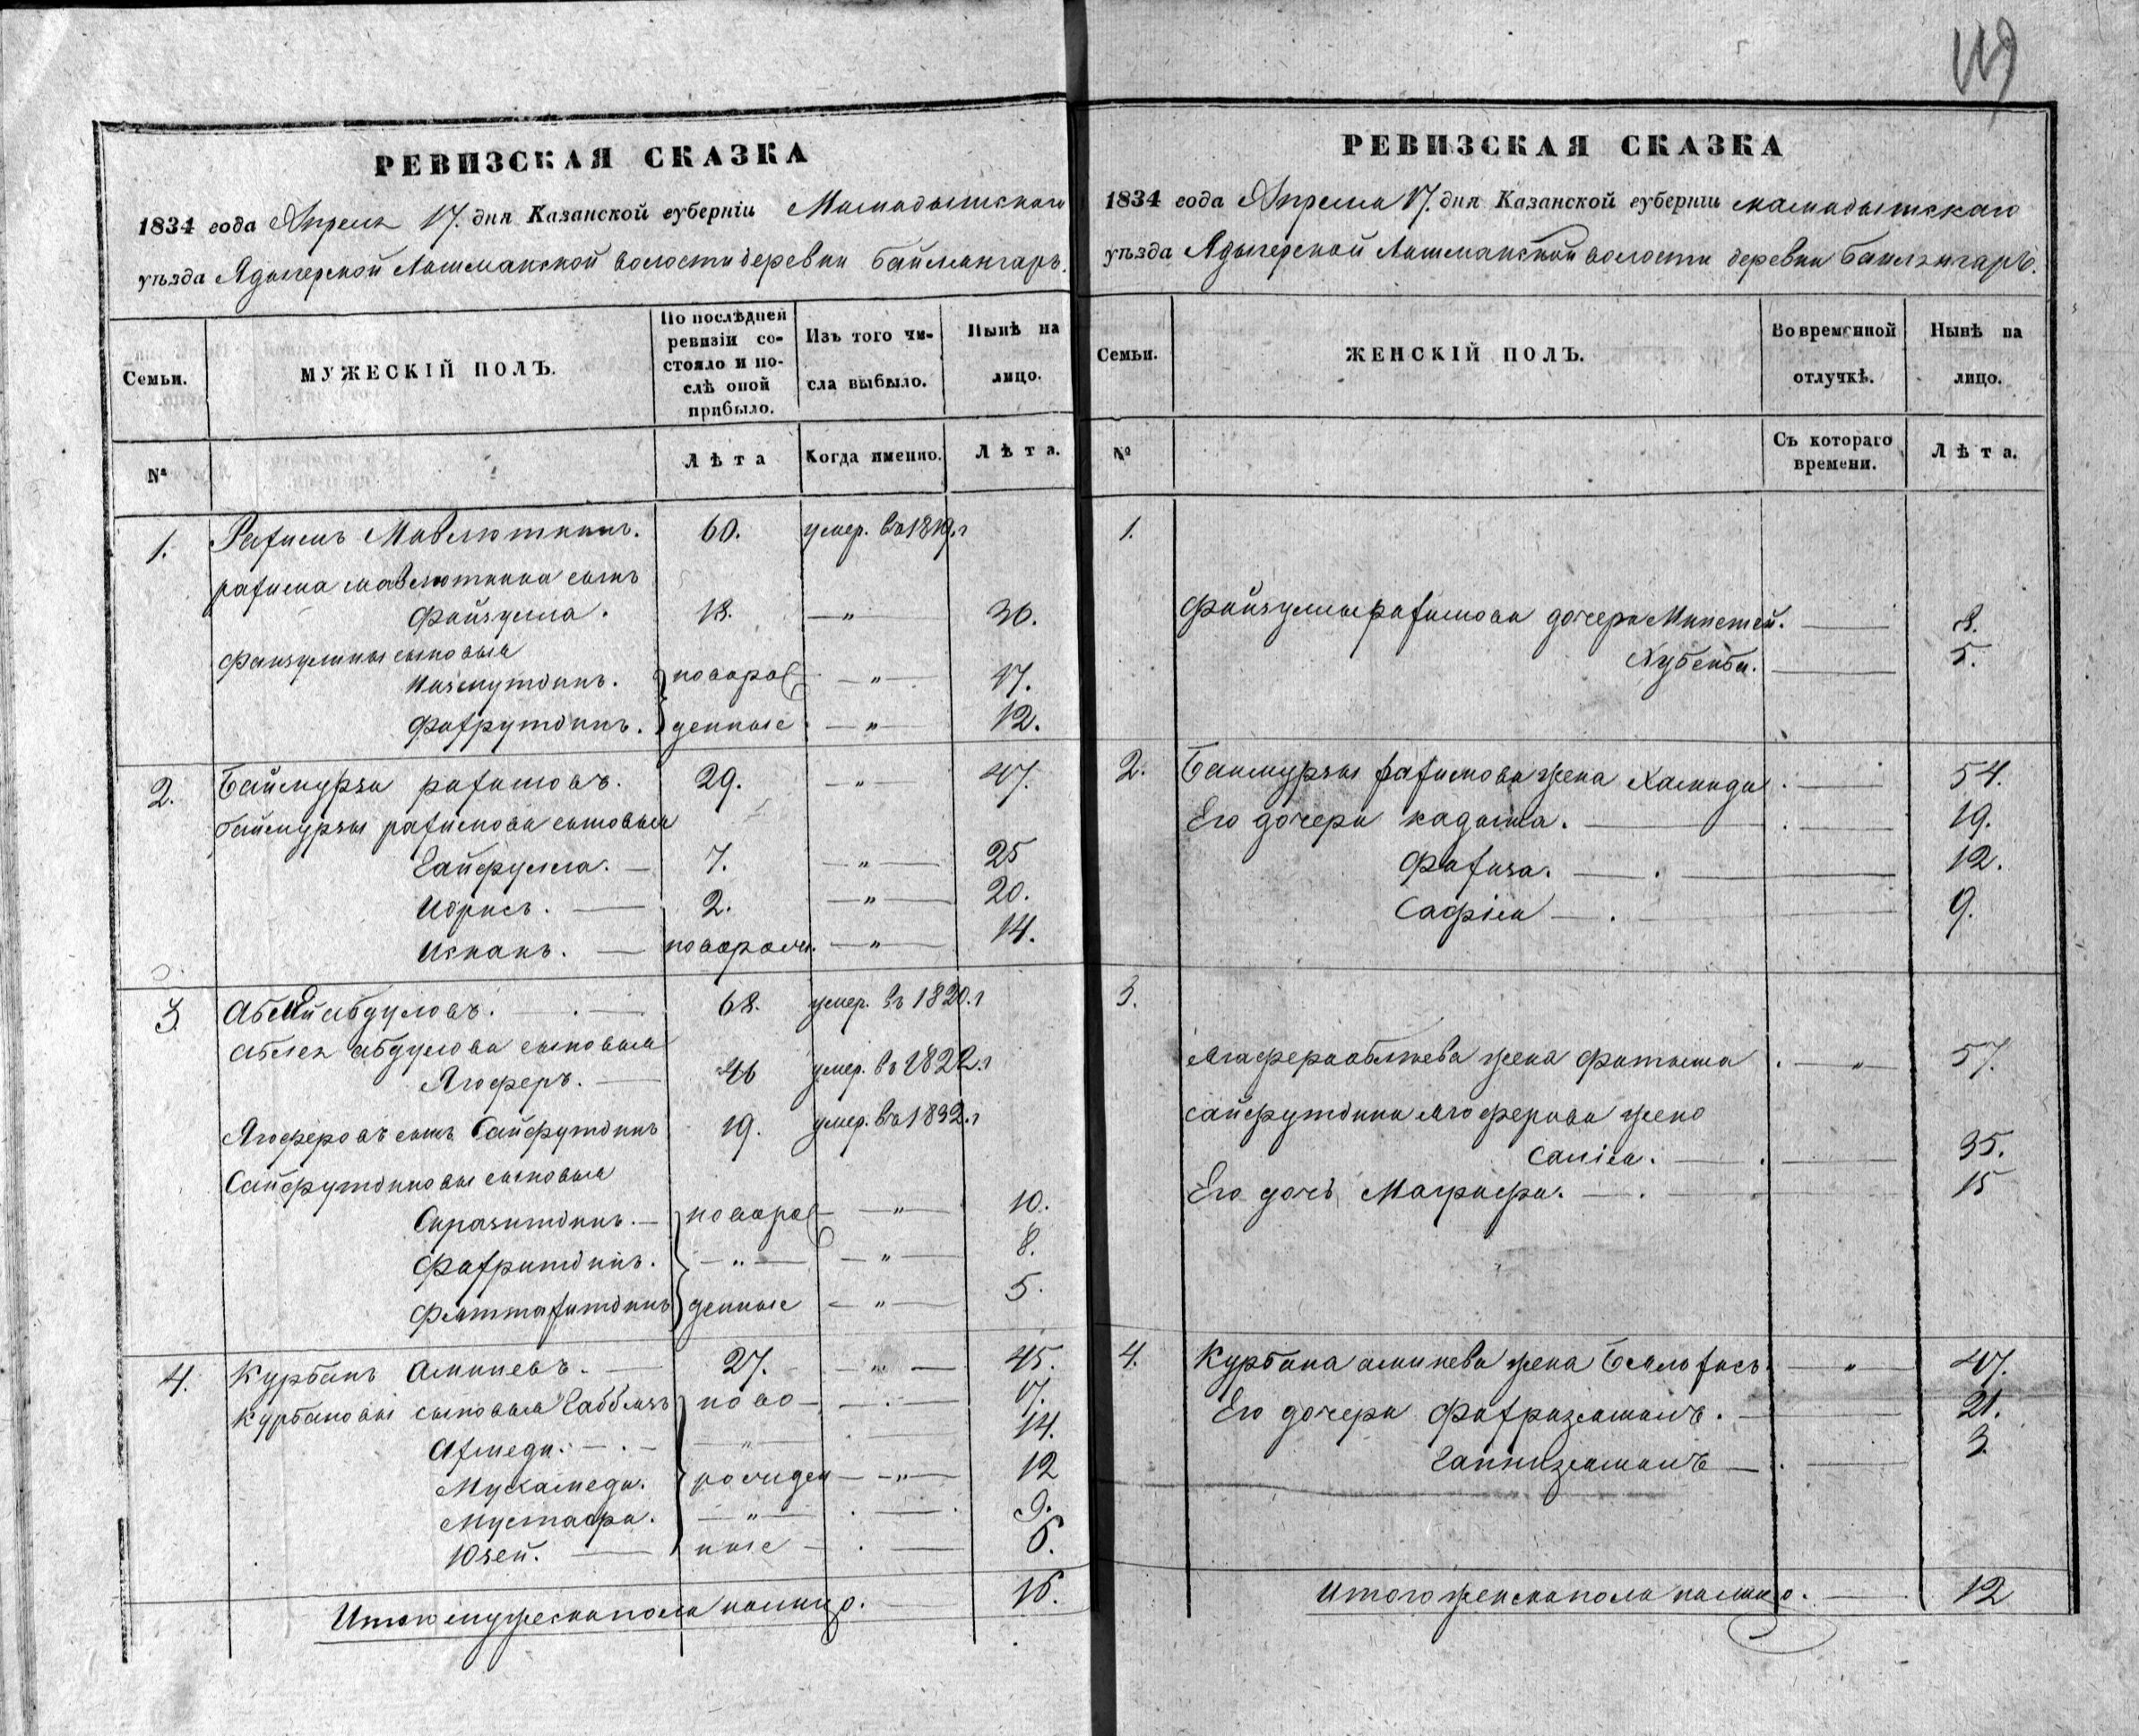 119
РЕВИЗСКАЯ СКАЗКА
1834 года Апреля 17. дня Казанской губерніи Мамадышскаго
уѣзда Адыгерской Лашманской волости деревни Байлянгаръ.
Семьи.
МУЖЕСКІЙ ПОЛЪ.
По послѣдней ревизіи состояло и послѣ оной прибыло.
Изъ того числа выбыло.
Нынѣ на лицо.
№
Лѣта
Когда именно.
Лѣта.
1. Рахимъ Мавлюткинъ. 60. умер. въ 1819.г
рахима мавлюткина сынъ
Файзулла. 18. —"— 36.
Файзуллины сыновья
Низмутдинъ. новорож —"— 17.
Фахрутдинъ. денные —"— 12.
2. Баймурза рахимовъ. 29. —"— 47.
баймурзы рахимова сыновья
Гайфулла. — 7. —"— 25
Идрисъ. — 2. —"— 20.
Исхакъ. — новорожд. —"— 14.
3. Аблей абдуловъ. — 68. умер. въ 1820.г
аблея абдулова сыновья
Ягоферъ. — 46 умер. въ 1822.г
Ягоферовъ сынъ Сайфутдинъ 19. умер. въ 1832.г
Сайфутдиновы сыновья
Сиразитдинъ. — новорож —"— 10.
Фахритдинъ. —"— —"— 8.
денные —"— 5.
4. Курбанъ Аминевъ. — 27. —"— 45.
Курбановы сыновья ново — — 17.
Ахмеди. — —"— — 14.
Мухамеди. рожден — —"— 12
Мустафа. —"— — 9.
Юзей. — ные — — 6.
Итого мужеска пола налицо. 16.
РЕВИЗСКАЯ СКАЗКА
1834 года Апреля 17. дня Казанской губерніи мамадышскаго
уѣзда Адыгерской Лашманской волости деревни Байлянгаръ.
Семьи.
ЖЕНСКІЙ ПОЛЪ.
Во временной отлучкѣ.
Нынѣ на лицо.
№
Съ котораго времени.
Лѣта.
1.
Файзуллы рахимова дочери — 8.
Хубейба. — 5.
2. Баймурзы рахимова жена Хамида. — 54.
Его дочери кадыша. — 19.
Фахиза. — 12.
Сафія — 9.
3.
Ягофера аблеева жена Фатыма —"— 57.
сайфутдина ягоферова жена
Салія. — 35.
Его дочь Магруфа. — 15
4. Курбана аминева жена —"— 47.
Его дочери Фахризямалъ. — 21.
Ганнизямалъ — 3.
Итого женска пола налицо. — 12